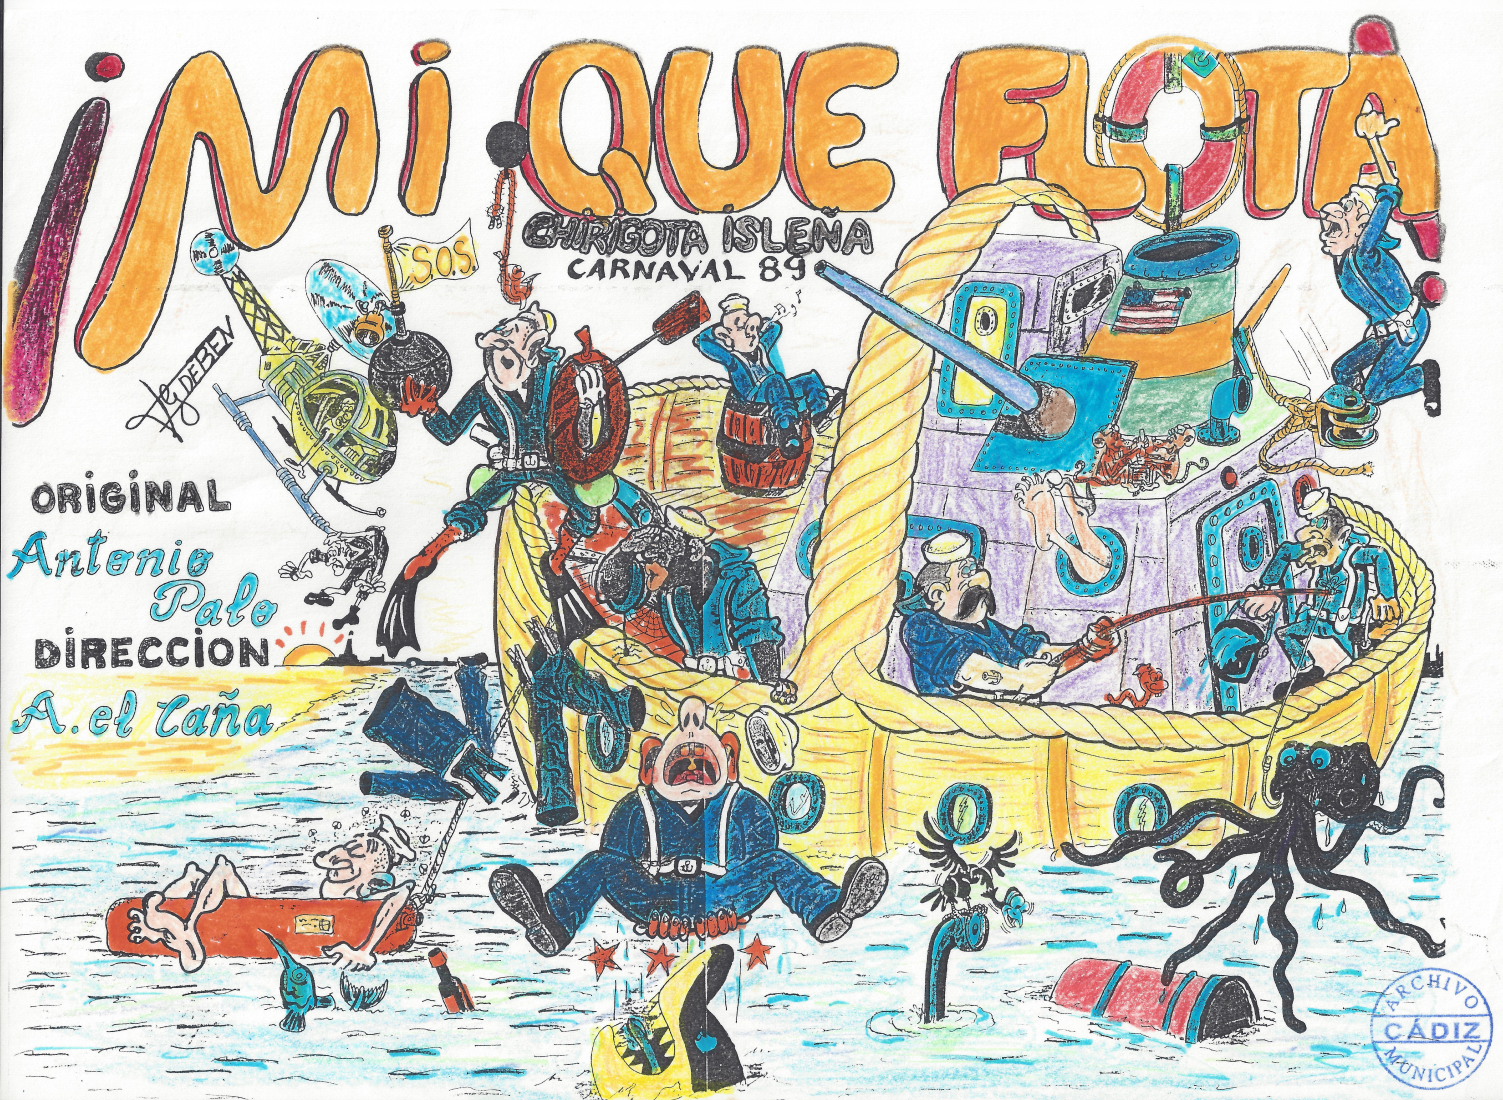 ¡Mi QUE FLOTA!
CHIRIGOTA ISLEÑA
CARNAVAL 89
S.O.S.
DEBEN
ORIGINAL
Antonio
Palo
DIRECCION
A. el Caña
ARCHIVO
CÁDIZ
MUNICIPAL